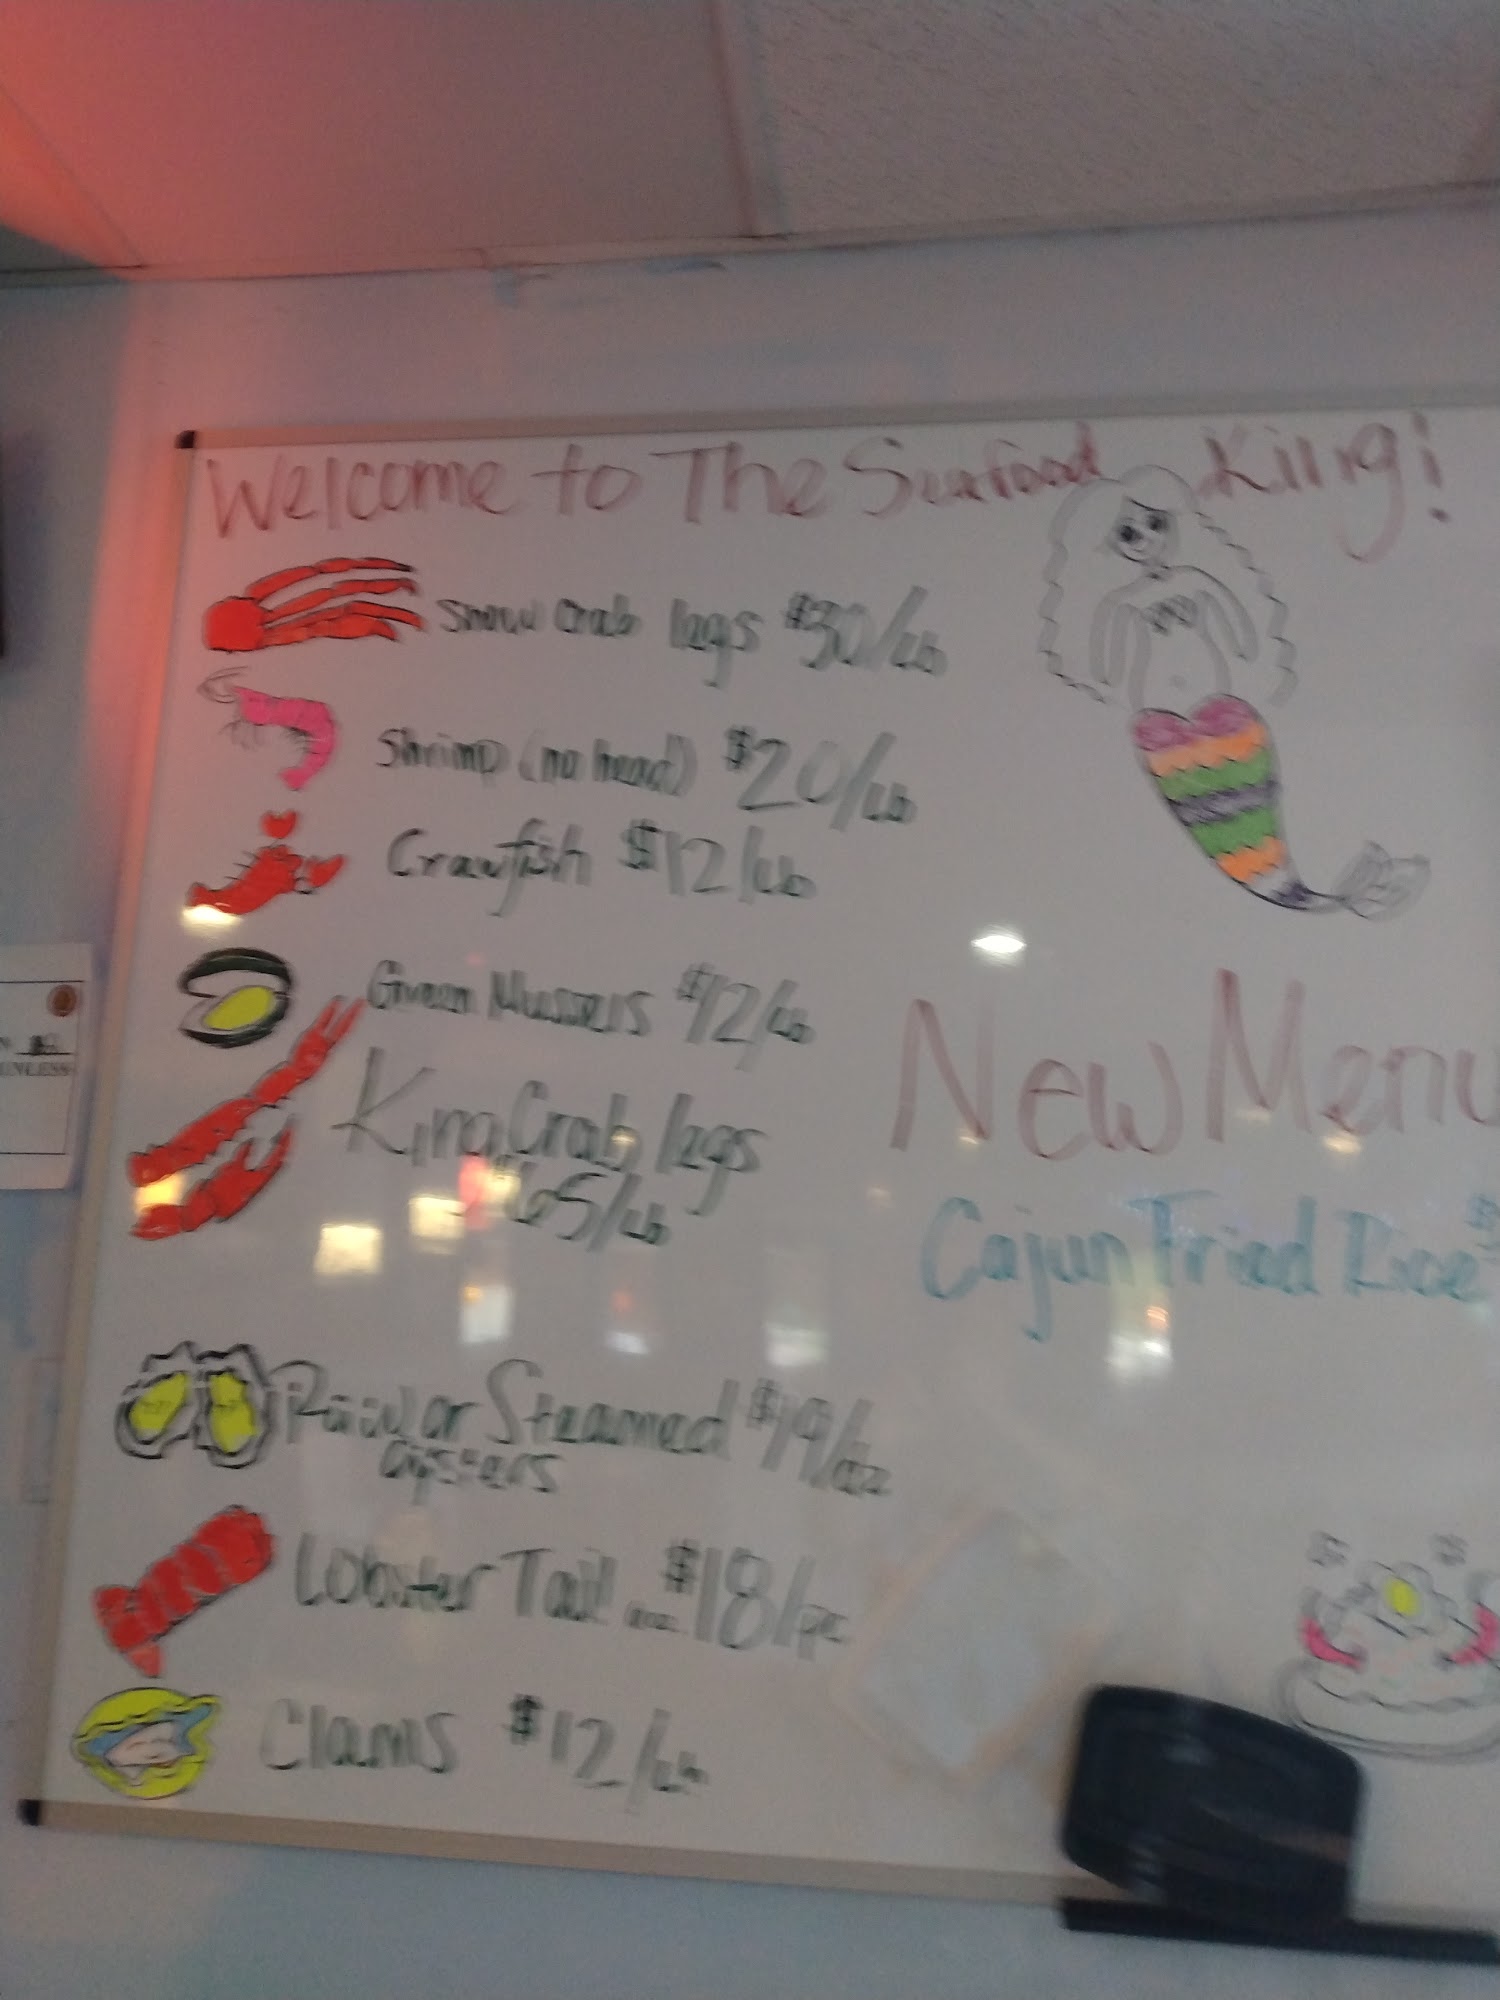 Welcome to The Seafood King!
Snow Crab legs $30/Lb
Shrimp (no head) $20/Lb
Crawfish $12/Lb
Green Mussels $12/Lb
King Crab legs
$65/Lb
Raw or Steamed $19/dz
Oysters
Lobster Tail $18/pc
Clams $12/Lb
New Menu
Cajun Fried Rice $
UNLESS